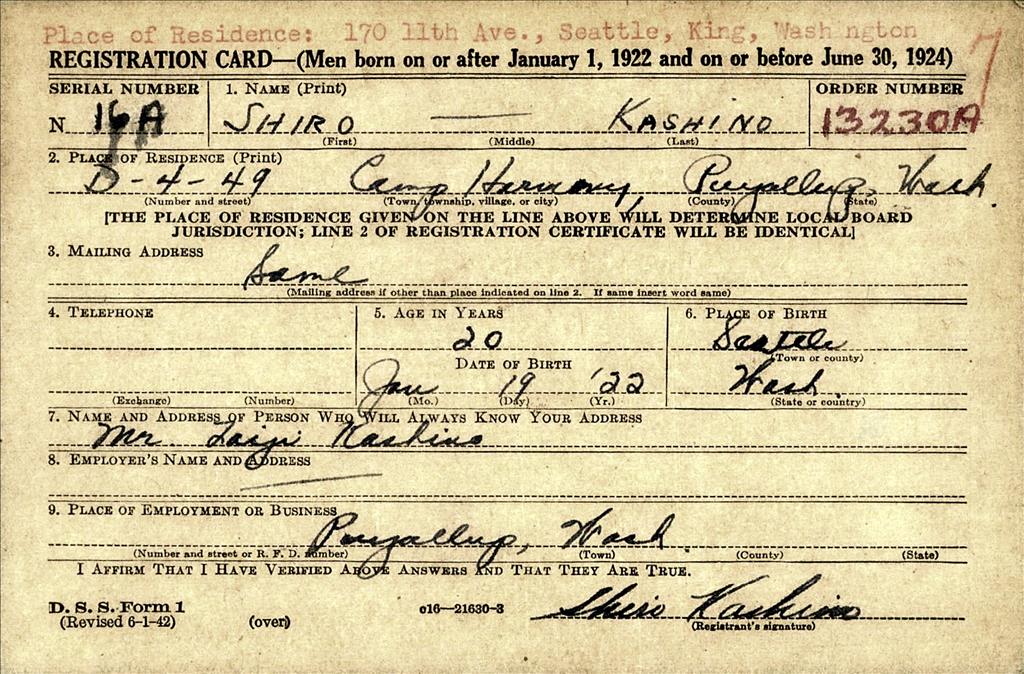 Place of Residence: 170 11th Ave., Seattle, King, Wash ngton
7
REGISTRATION CARD—(Men born on or after January 1, 1922 and on or before June 30, 1924)
SERIAL NUMBER
1. NAME (Print)
ORDER NUMBER
N 16A
SHIRO — KASHINO
13230A
(First) (Middle) (Last)
2. PLACE OF RESIDENCE (Print)
D-4-49 Camp Harmony, Puyallup, Wash.
(Number and street) (Town, township, village, or city) (County) (State)
[THE PLACE OF RESIDENCE GIVEN ON THE LINE ABOVE WILL DETERMINE LOCAL BOARD
JURISDICTION; LINE 2 OF REGISTRATION CERTIFICATE WILL BE IDENTICAL]
3. MAILING ADDRESS
Same
(Mailing address if other than place indicated on line 2. If same insert word same)
4. TELEPHONE
5. AGE IN YEARS
6. PLACE OF BIRTH
20
Seattle
(Town or county)
DATE OF BIRTH
Jan 19 '22
Wash
(Exchange) (Number)
(Mo.) (Day) (Yr.)
(State or country)
7. NAME AND ADDRESS OF PERSON WHO WILL ALWAYS KNOW YOUR ADDRESS
Mr. Kashino
8. EMPLOYER'S NAME AND ADDRESS
—
9. PLACE OF EMPLOYMENT OR BUSINESS
Puyallup, Wash
(Number and street or R. F. D. number) (Town) (County) (State)
I AFFIRM THAT I HAVE VERIFIED ABOVE ANSWERS AND THAT THEY ARE TRUE.
D. S. S. Form 1
(Revised 6-1-42) (over)
o16—21630-3
Shiro Kashino
(Registrant's signature)